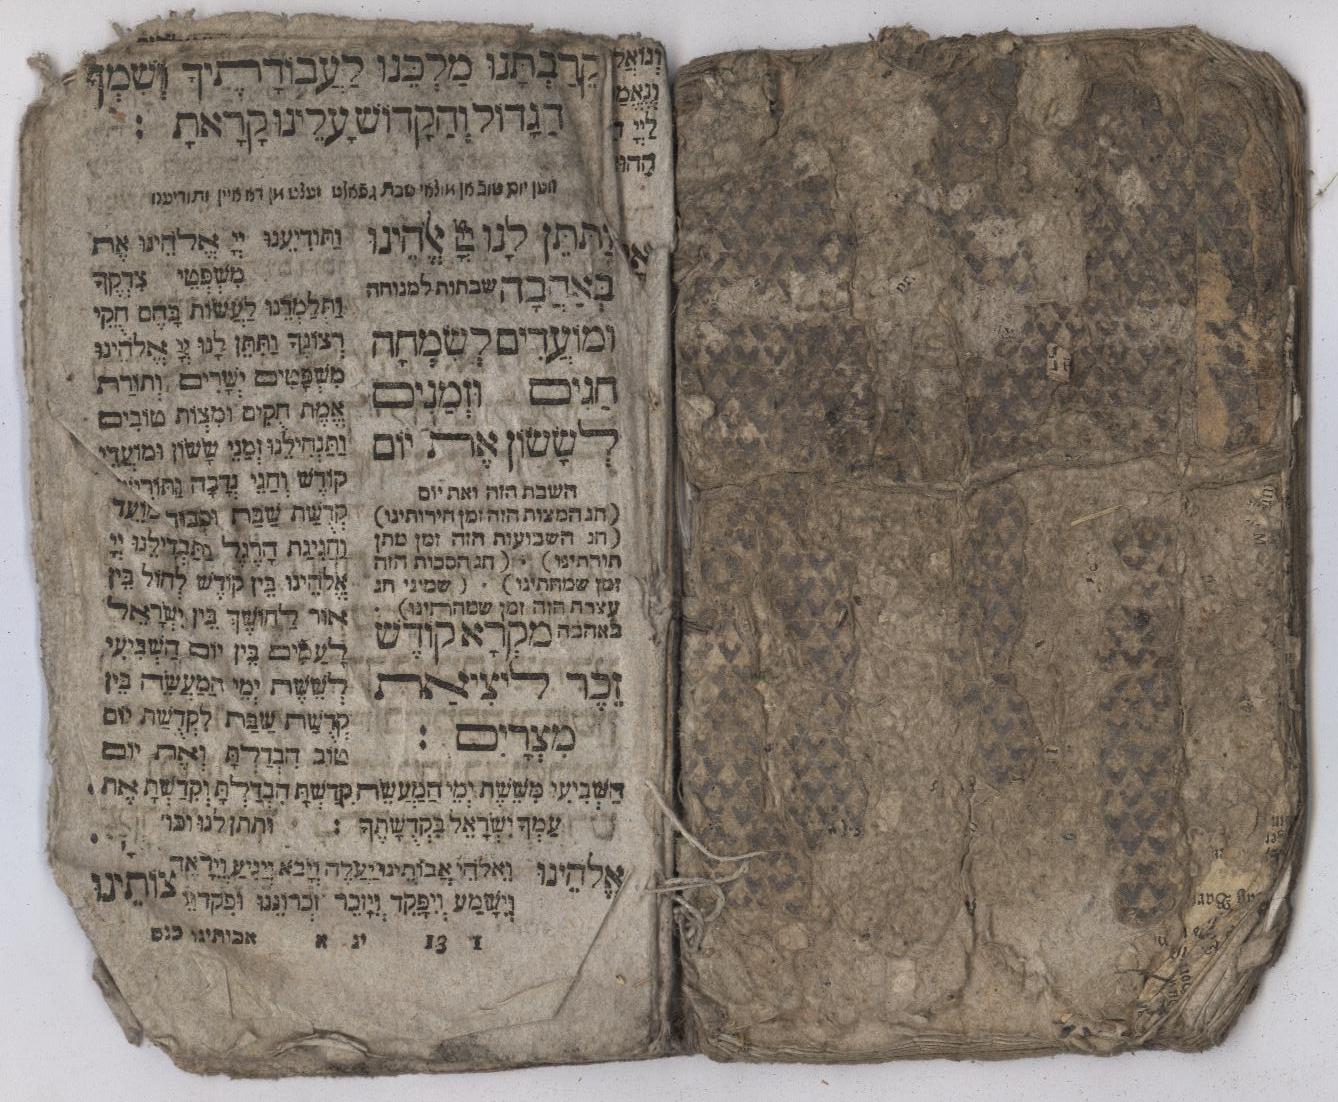 קֵרַבְתָּנוּ מַלְכֵּנוּ לַעֲבוֹדָתֶיךָ וְשִׁמְךָ
הַגָּדוֹל וְהַקָּדוֹשׁ עָלֵינוּ קָרָאתָ :
ווען יום טוב אן מוצאי שבת זאגט מן דא איין ותודיענו
וַתִּתֶּן לָנוּ יְיָ אֱלֹהֵינוּ
בְּאַהֲבָה שבתות למנוחה
וּמוֹעֲדִים לְשִׂמְחָה
חַגִּים וּזְמַנִּים
לְשָׂשׂוֹן אֶת יוֹם
השבת הזה ואת יום
(חג המצות הזה זמן חירותינו)
(חג השבועות הזה זמן מתן
תורתינו) · (חג הסכות הזה
זמן שמחתינו) · (שמיני חג
עצרת הזה זמן שמחתינו) :
באהבה מִקְרָא קוֹדֶשׁ
זֵכֶר לִיצִיאַת
מִצְרָיִם :
וַתּוֹדִיעֵנוּ יְיָ אֱלֹהֵינוּ אֶת
מִשְׁפְּטֵי צִדְקֶךָ
וַתְּלַמְּדֵנוּ לַעֲשׂוֹת בָּהֶם חֻקֵּי
רְצוֹנֶךָ וַתִּתֶּן לָנוּ יְיָ אֱלֹהֵינוּ
מִשְׁפָּטִים יְשָׁרִים וְתוֹרַת
אֱמֶת חֻקִּים וּמִצְוֹת טוֹבִים
וַתַּנְחִילֵנוּ זְמַנֵּי שָׂשׂוֹן וּמוֹעֲדֵי
קוֹדֶשׁ וְחַגֵּי נְדָבָה וַתּוֹרִישֵׁנוּ
קְדֻשַּׁת שַׁבָּת וּכְבוֹד מוֹעֵד
וַחֲגִיגַת הָרֶגֶל וַתַּבְדִּילֵנוּ יְיָ
אֱלֹהֵינוּ בֵּין קוֹדֶשׁ לְחוֹל בֵּין
אוֹר לְחוֹשֶׁךְ בֵּין יִשְׂרָאֵל
לָעַמִּים בֵּין יוֹם הַשְּׁבִיעִי
לְשֵׁשֶׁת יְמֵי הַמַּעֲשֶׂה בֵּין
קְדֻשַּׁת שַׁבָּת לִקְדֻשַּׁת יוֹם
טוֹב הִבְדַּלְתָּ וְאֶת יוֹם
הַשְּׁבִיעִי מִשֵּׁשֶׁת יְמֵי הַמַּעֲשֶׂה קִדַּשְׁתָּ הִבְדַּלְתָּ וְקִדַּשְׁתָּ אֶת
עַמְּךָ יִשְׂרָאֵל בִּקְדֻשָּׁתֶךָ : ותתן לנו וכו׳
אֱלֹהֵינוּ וֵאלֹהֵי אֲבוֹתֵינוּ יַעֲלֶה וְיָבֹא וְיַגִּיעַ וְיֵרָאֶה
וְיִשָּׁמַע וְיִפָּקֵד וְיִזָּכֵר זִכְרוֹנֵנוּ וּפִקְדוֹ
אבותינו כנס יג א 13 1